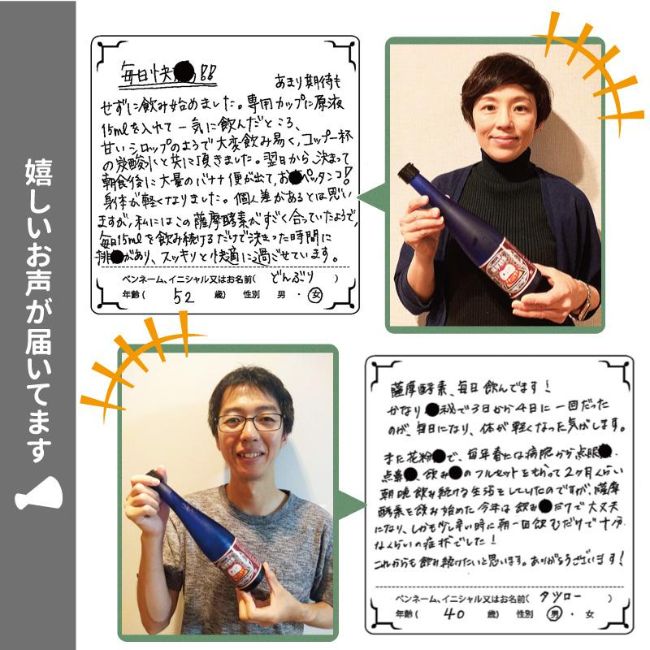 嬉しいお声が届いてます
毎日快●!!
あまり期待も
せずに飲み始めました。専用カップに原液
15mlを入れて一気に飲んだところ、
甘いシロップのようで大変飲み易く、コップ一杯
の炭酸水と共に頂きました。翌日から、決まって
朝食後に大量のバナナ便が出て、お●ペッタンコ!
身体が軽くなりました。個人差があるとは思い
ますが、私にはこの薩摩酵素がすごく合っていたようで、
毎日15mlを飲み続けるだけで決まった時間に
排●があり、スッキリと快適に過ごせています。
ペンネーム、イニシャル又はお名前( どんぶり )
年齢( 52 歳) 性別 男・女
薩摩酵素、毎日飲んでます!
かなり●秘で3日から4日に一回だった
のが、毎日になり、体が軽くなった気がします。
また花粉●で、毎年春には病院から点眼●、
点鼻●、飲み●のフルセットをもらって2ヶ月くらい
朝晩飲み続ける生活をしていたのですが、薩摩
酵素を飲み始めた今年は飲み●だけで大丈夫
になり、しかも少し辛い時に朝一回飲むだけで十分
なくらいの症状でした!
これからも飲み続けたいと思います。ありがとうございます!
ペンネーム、イニシャル又はお名前( タツロー )
年齢( 40 歳) 性別 男・女